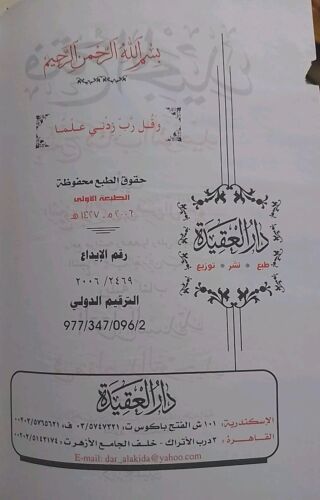 بسم الله الرحمن الرحيم
وَقُل رَّبِّ زِدْنِي عِلْمًا
حقوق الطبع محفوظة
الطبعة الأولى
٢٠٠٦م - ١٤٢٧هـ
رقم الإيداع
٢٤٦٩ / ٢٠٠٦
الترقيم الدولي
977/347/096/2
دار العقيدة
طبع * نشر * توزيع
دار العقيدة
الإسكندرية: ١٠١ ش الفتح باكوس ت: ٠٣/٥٧٤٧٣٢١ ف: ٠٠٢٠٣/٥٧٦٥٦٢١
القاهرة: ٣ درب الأتراك - خلف الجامع الأزهر ت: ٠٠٢٠٢/٥١٤٢١٧٤
E-mail: dar_alakida@yahoo.com